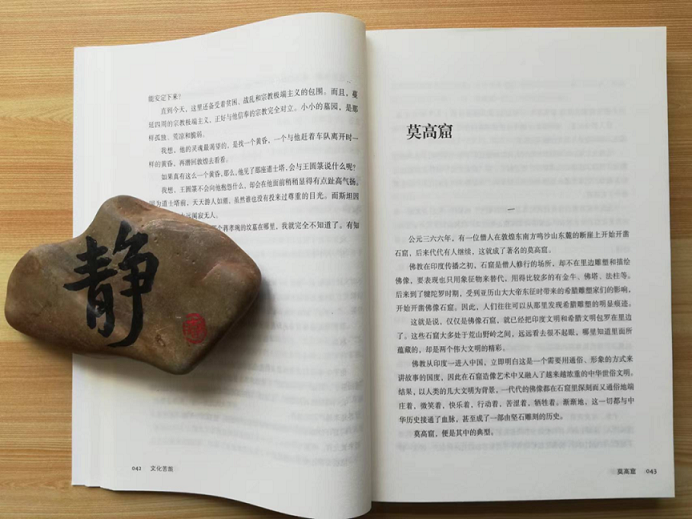 能安定下来?
直到今天,这里还备受着贫困、战乱和宗教极端主义的包围。而且,蔓
延四周的宗教极端主义,正好与他信奉的宗教完全对立。小小的墓园,是那
样孤独、荒凉和脆弱。
我想,他的灵魂最渴望的,是找一个黄昏,一个与他赶着车队离开时一
样的黄昏,再潜回敦煌去看看。
如果真有这么一个黄昏,那么,他见了那座道士塔,会与王圆箓说什么呢?
我想,王圆箓不会向他抱怨什么,却会在他面前稍稍显得有点趾高气扬。
因为道士塔前,天天游人如潮,虽然谁也没有投来过尊重的目光。而斯坦因
围寂无人。
蒋孝琬的坟墓在哪里,我就完全不知道了。有知
静
041 文化苦旅
莫高窟
一
公元三六六年,有一位僧人在敦煌东南方鸣沙山东麓的断崖上开始开凿
石窟,后来代代有人继续,这就成了著名的莫高窟。
佛教在印度传播之初,石窟是僧人修行的场所,却不在里边雕塑和描绘
佛像,要表现也只用象征物来替代,用得比较多的有金牛、佛塔、法柱等。
后来到了犍陀罗时期,受到亚历山大大帝东征时带来的希腊雕塑家们的影响,
开始开凿佛像石窟。因此,人们往往可以从那里发现希腊雕塑的明显痕迹。
这就是说,仅仅是佛像石窟,就已经把印度文明和希腊文明包罗在里边
了。这些石窟大多处于荒山野岭之间,远远看去很不起眼,哪里知道里面所
蕴藏的,却是两个伟大文明的精彩。
佛教从印度一进入中国,立即明白这是一个需要用通俗、形象的方式来
讲故事的国度,因此在石窟造像艺术中又融入了越来越浓重的中华世俗文明。
结果,以人类的几大文明为背景,一代代的佛像都在石窟里深刻而又通俗地端
庄着,微笑着,快乐着,行动着,苦涩着,牺牲着。渐渐地,这一切都与中
华历史接通了血脉,甚至成了一部由坚石雕刻的历史。
莫高窟,便是其中的典型。
莫高窟 043